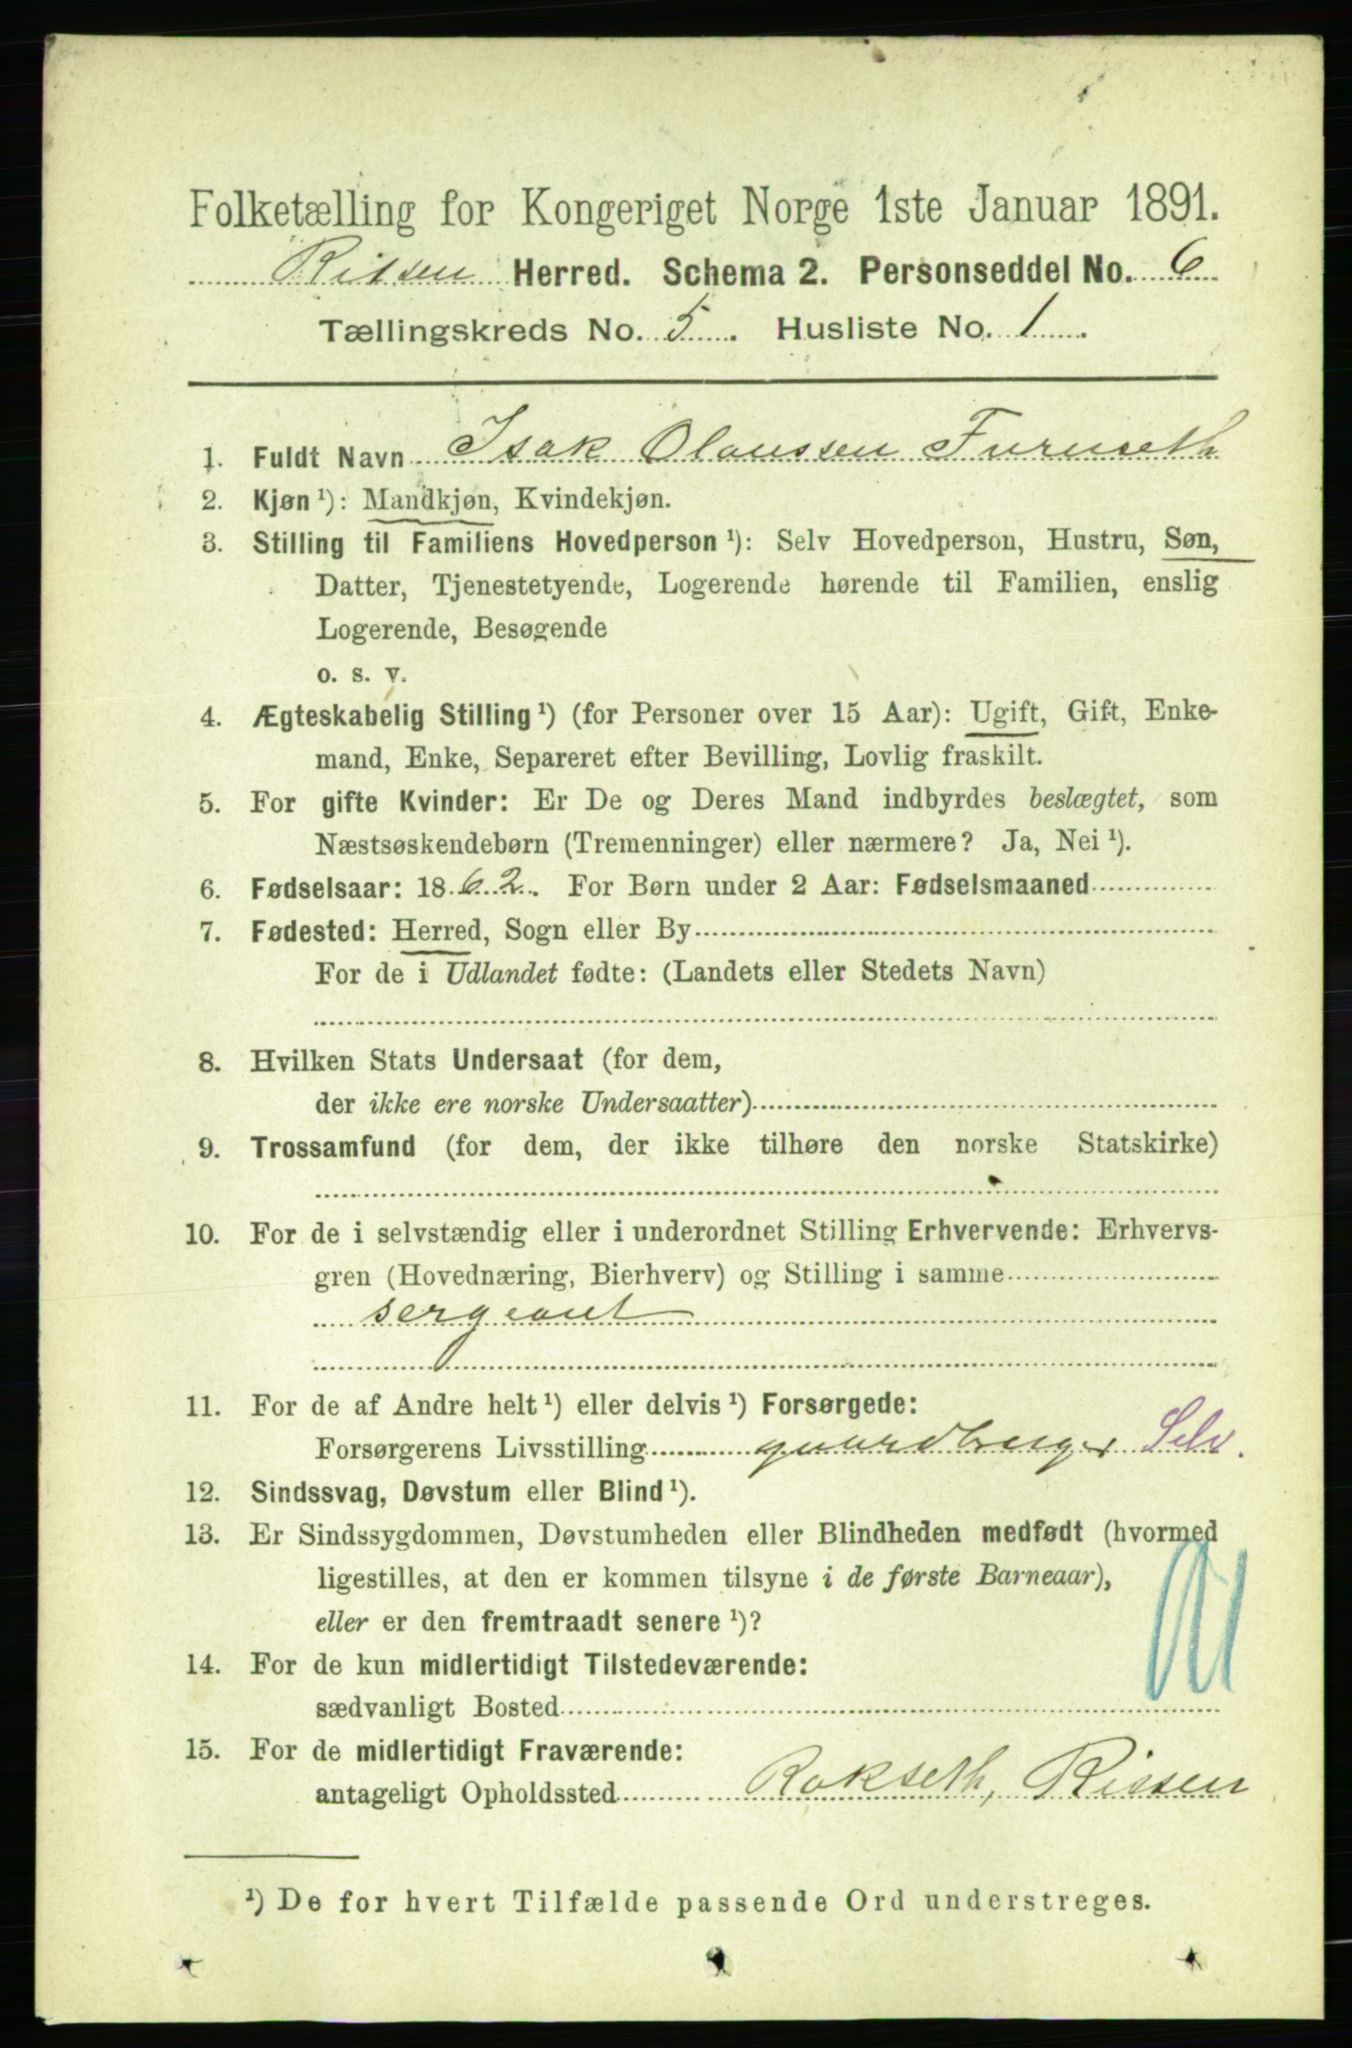 Folketælling for Kongeriget Norge 1ste Januar 1891.
Rissen Herred. Schema 2. Personseddel No. 6
Tællingskreds No. 5. Husliste No. 1
1. Fuldt Navn Isak Olaussen Furuseth
2. Kjøn ¹): Mandkjøn, Kvindekjøn.
3. Stilling til Familiens Hovedperson ¹): Selv Hovedperson, Hustru, Søn,
Datter, Tjenestetyende, Logerende hørende til Familien, enslig
Logerende, Besøgende
o. s. v.
4. Ægteskabelig Stilling ¹) (for Personer over 15 Aar): Ugift, Gift, Enke-
mand, Enke, Separeret efter Bevilling, Lovlig fraskilt.
5. For gifte Kvinder: Er De og Deres Mand indbyrdes beslægtet, som
Næstsøskendebørn (Tremenninger) eller nærmere? Ja, Nei ¹).
6. Fødselsaar: 1862. For Børn under 2 Aar: Fødselsmaaned
7. Fødested: Herred, Sogn eller By
For de i Udlandet fødte: (Landets eller Stedets Navn)
8. Hvilken Stats Undersaat (for dem,
der ikke ere norske Undersaatter)
9. Trossamfund (for dem, der ikke tilhøre den norske Statskirke)
10. For de i selvstændig eller i underordnet Stilling Erhvervende: Erhvervs-
gren (Hovednæring, Bierhverv) og Stilling i samme
sergeant
11. For de af Andre helt ¹) eller delvis ¹) Forsørgede:
Forsørgerens Livsstilling gaardbruger Selv.
12. Sindssvag, Døvstum eller Blind ¹).
13. Er Sindssygdommen, Døvstumheden eller Blindheden medfødt (hvormed
ligestilles, at den er kommen tilsyne i de første Barneaar),
eller er den fremtraadt senere ¹)?
14. For de kun midlertidigt Tilstedeværende:
sædvanligt Bosted
15. For de midlertidigt Fraværende:
antageligt Opholdssted Rokseth, Rissen
¹) De for hvert Tilfælde passende Ord understreges.